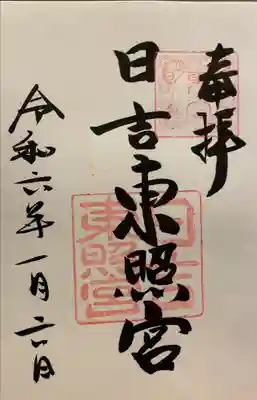 奉拝
日吉東照宮
日吉東照宮
令和六年一月二六日